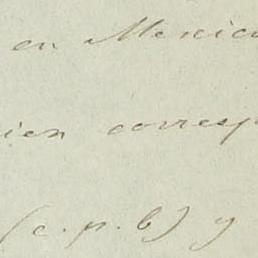 en Mexico
ien corresp
(c.p.b) y